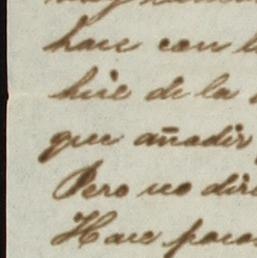 hace con l
hice de la
que añadir
Pero no diri
Hace pocos